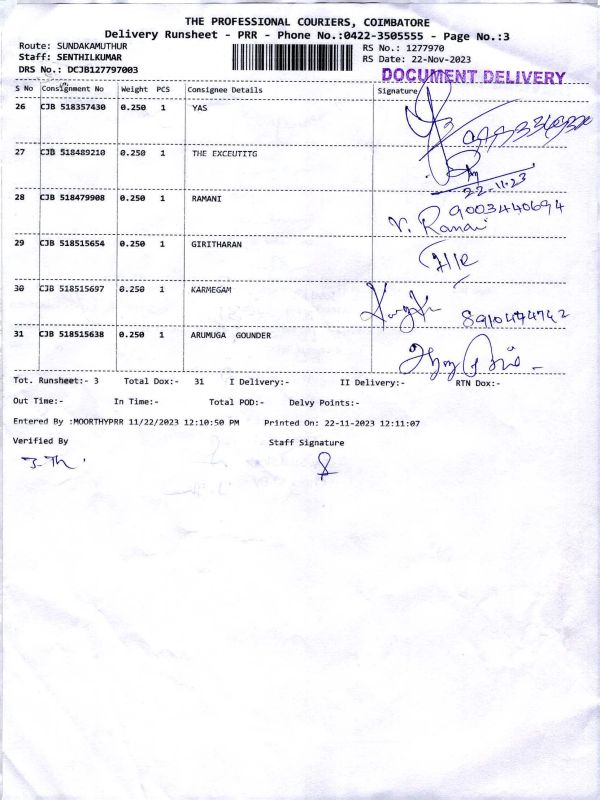 THE PROFESSIONAL COURIERS, COIMBATORE
Delivery Runsheet - PRR - Phone No.:0422-3505555 - Page No.:3
Route: SUNDAKAMUTHUR
RS No.: 1277970
Staff: SENTHILKUMAR
RS Date: 22-Nov-2023
DRS No.: DCJB127797003
DOCUMENT DELIVERY
S No Consignment No Weight PCS Consignee Details Signature
26 CJB 518357430 0.250 1 YAS
27 CJB 518489210 0.250 1 THE EXCEUTITG
22-11-23
28 CJB 518479908 0.250 1 RAMANI 9003440694
V. Ramani
29 CJB 518515654 0.250 1 GIRITHARAN
30 CJB 518515697 0.250 1 KARMEGAM
31 CJB 518515638 0.250 1 ARUMUGA GOUNDER
Tot. Runsheet:- 3 Total Dox:- 31 I Delivery:- II Delivery:- RTN Dox:-
Out Time:- In Time:- Total POD:- Delvy Points:-
Entered By :MOORTHYPRR 11/22/2023 12:10:50 PM Printed On: 22-11-2023 12:11:07
Verified By Staff Signature